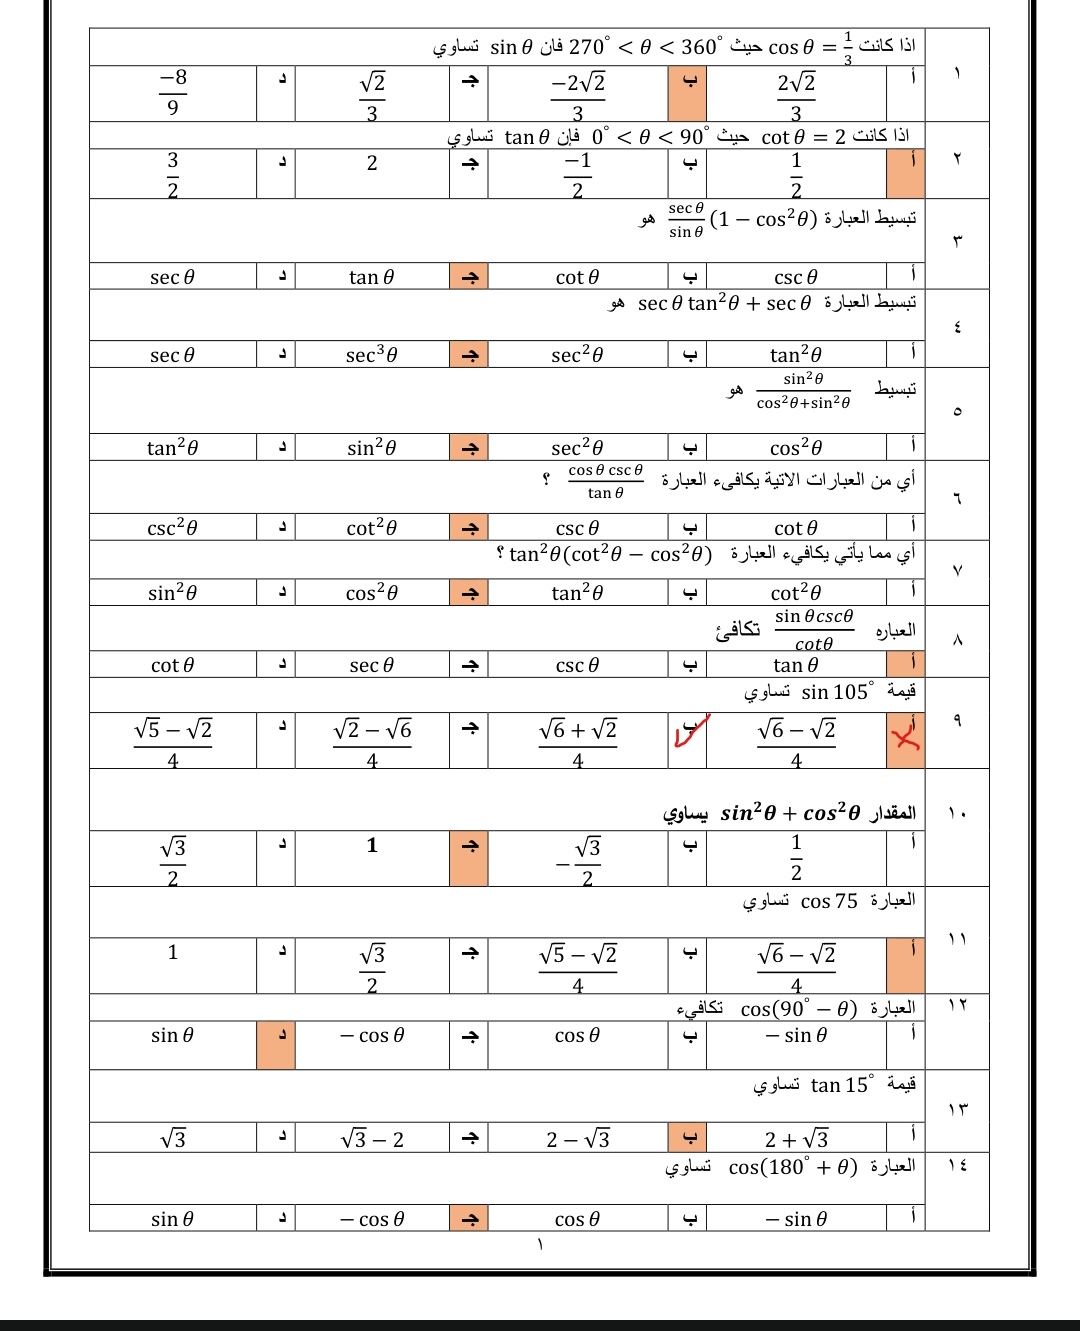 اذا كانت cos θ = 1/3 حيث 270° < θ < 360° فان sin θ تساوي
١
أ 2√2/3 ب −2√2/3 جـ √2/3 د −8/9
اذا كانت cot θ = 2 حيث 0° < θ < 90° فإن tan θ تساوي
٢
أ 1/2 ب −1/2 جـ 2 د 3/2
تبسيط العبارة sec θ/sin θ (1 − cos²θ) هو
٣
أ csc θ ب cot θ جـ tan θ د sec θ
تبسيط العبارة sec θ tan²θ + sec θ هو
٤
أ tan²θ ب sec²θ جـ sec³θ د sec θ
تبسيط sin²θ/cos²θ+sin²θ هو
٥
أ cos²θ ب sec²θ جـ sin²θ د tan²θ
أي من العبارات الاتية يكافىء العبارة cos θ csc θ/tan θ ؟
٦
أ cot θ ب csc θ جـ cot²θ د csc²θ
أي مما يأتي يكافيء العبارة tan²θ(cot²θ − cos²θ) ؟
٧
أ cot²θ ب tan²θ جـ cos²θ د sin²θ
العباره sin θcscθ/cotθ تكافئ
٨
أ tan θ ب csc θ جـ sec θ د cot θ
قيمة sin 105° تساوي
٩
أ √6 − √2/4 ب √6 + √2/4 جـ √2 − √6/4 د √5 − √2/4
المقدار sin²θ + cos²θ يساوي
١٠
أ 1/2 ب −√3/2 جـ 1 د √3/2
العبارة cos 75 تساوي
١١
أ √6 − √2/4 ب √5 − √2/4 جـ √3/2 د 1
العبارة cos(90° − θ) تكافيء
١٢
أ − sin θ ب cos θ جـ − cos θ د sin θ
قيمة tan 15° تساوي
١٣
أ 2 + √3 ب 2 − √3 جـ √3 − 2 د √3
العبارة cos(180° + θ) تساوي
١٤
أ − sin θ ب cos θ جـ − cos θ د sin θ
١